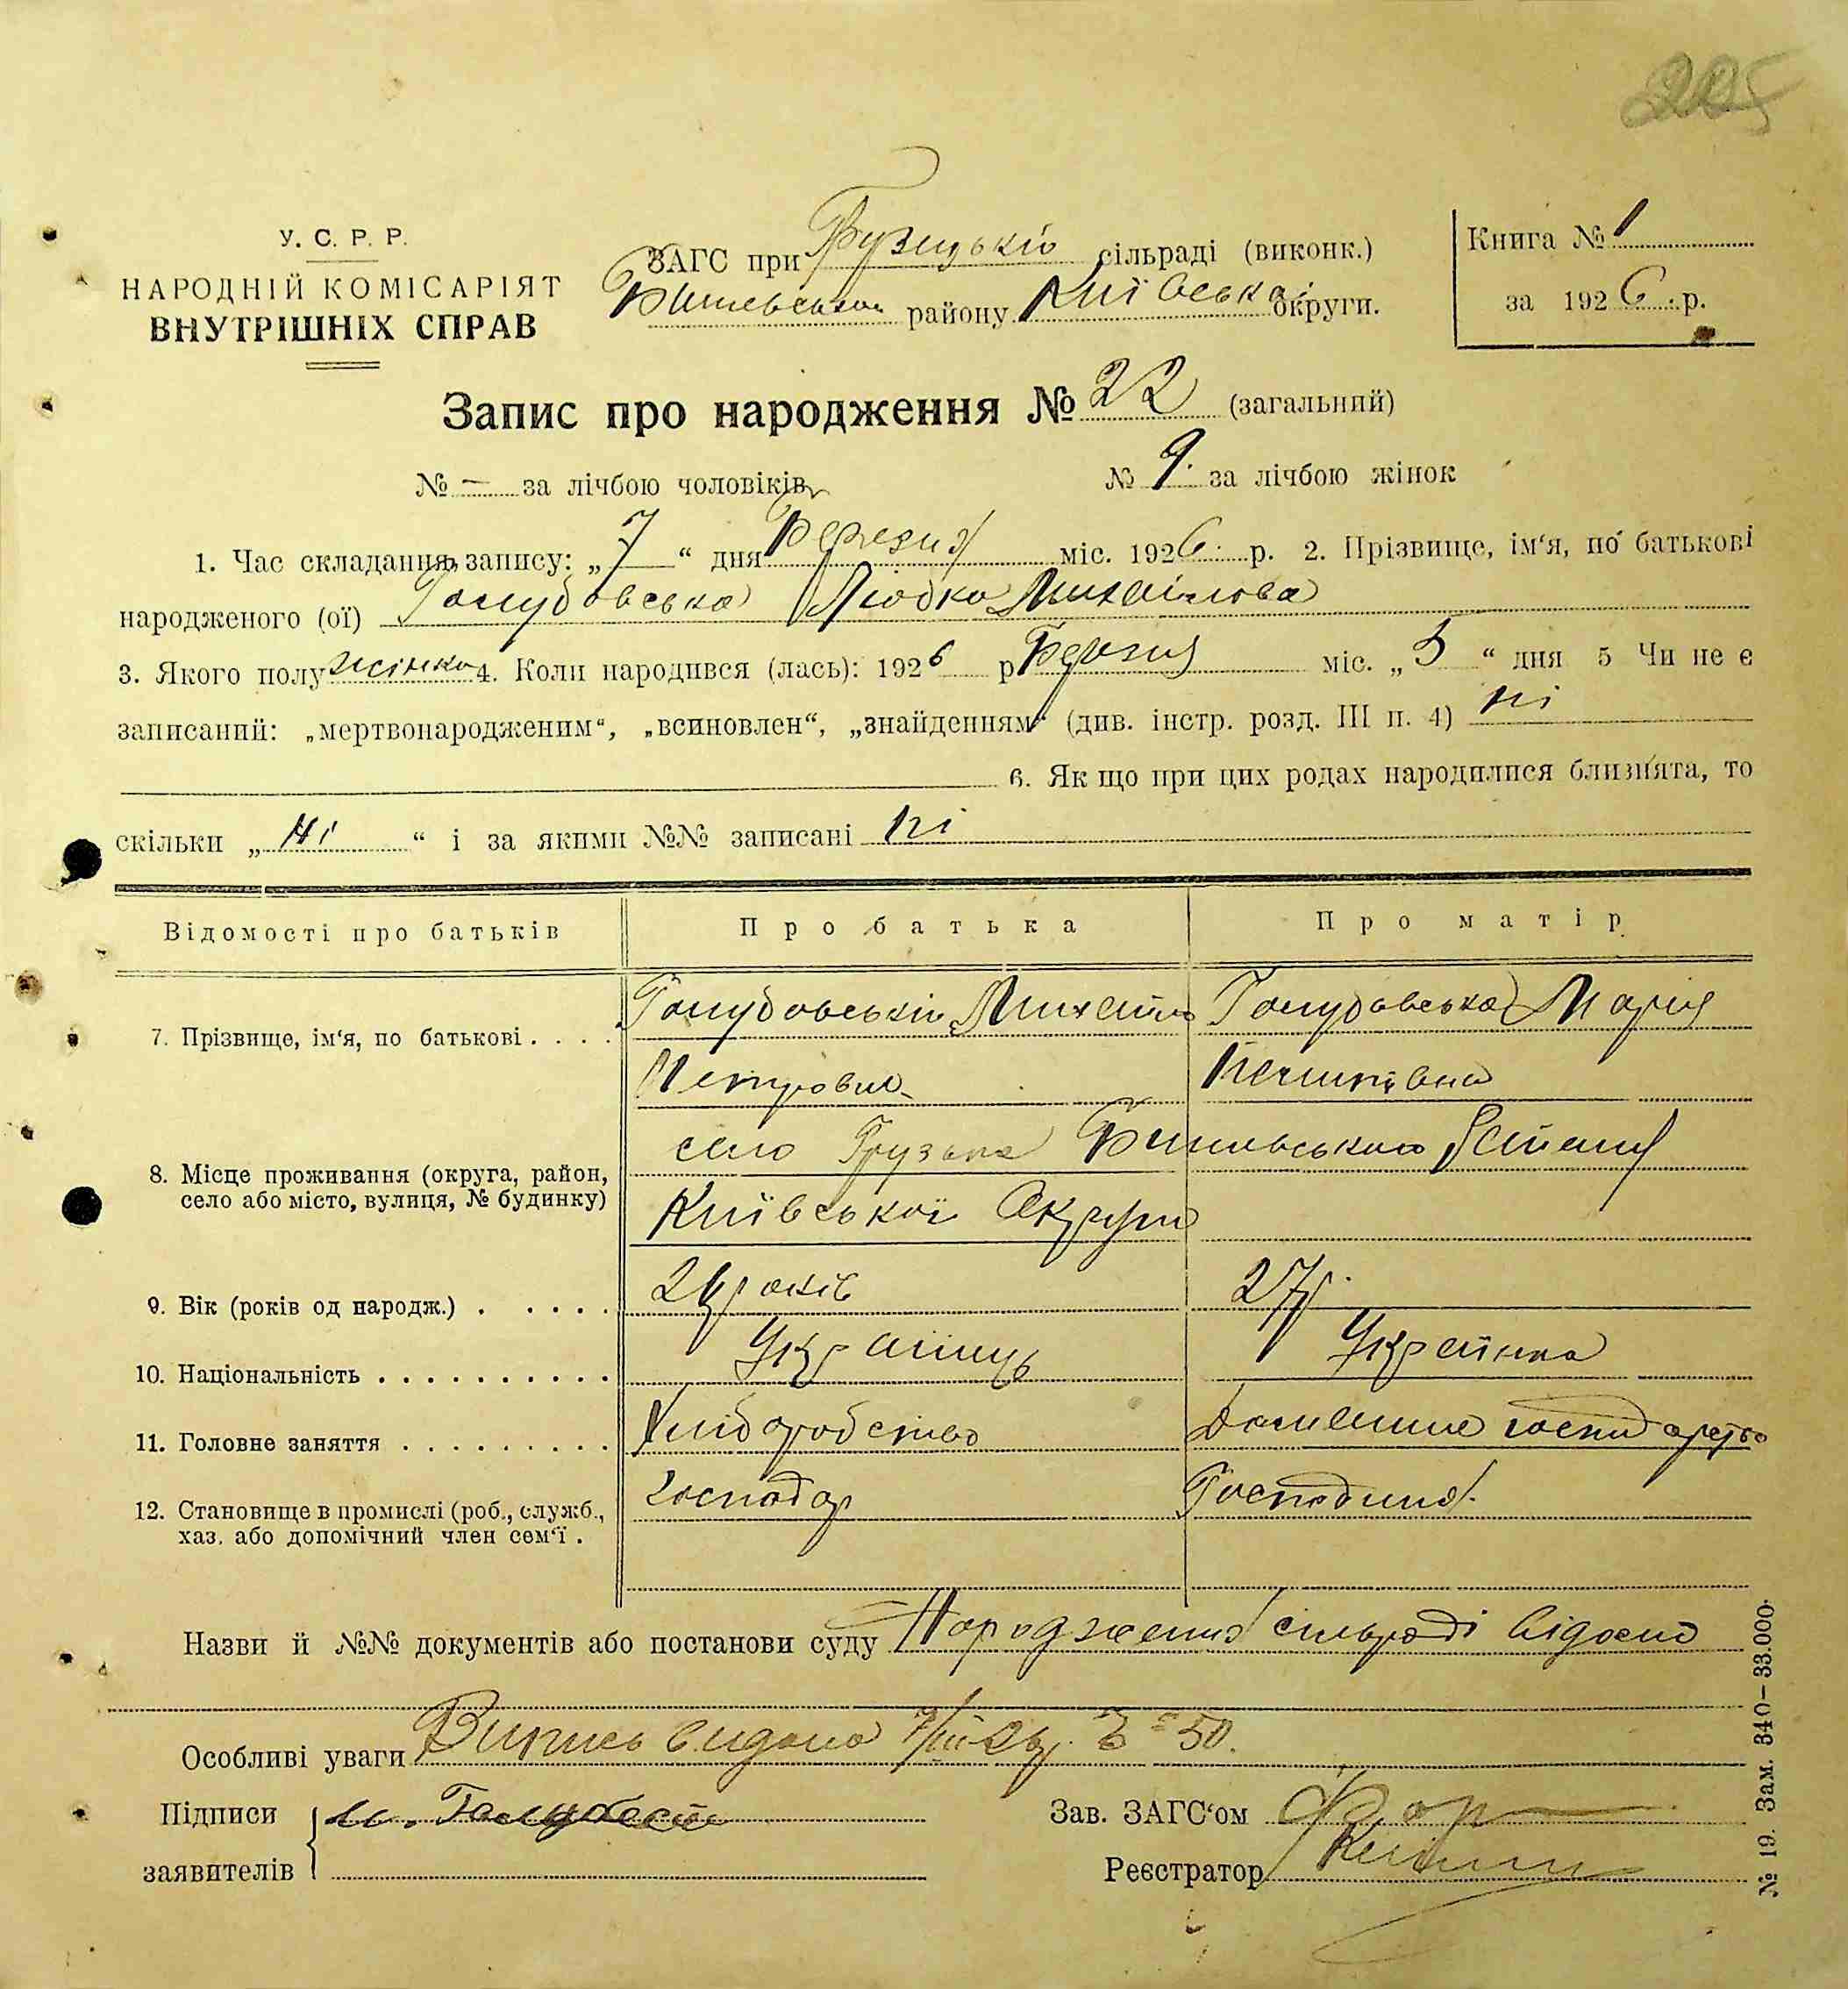 225
У. С. Р. Р.
НАРОДНІЙ КОМІСАРІЯТ
ВНУТРІШНІХ СПРАВ
ЗАГС при Грузській сільраді (виконк.)
Бишевського району Київської округи.
Книга № 1
за 1926 р.
Запис про народження № 22 (загальний)
№ — за лічбою чоловіків
№ 9. за лічбою жінок
1. Час складання запису: „ 7 “ дня Березня міс. 1926 р. 2. Прізвище, ім‘я, по батькові
народженого (ої) Голубовська Людко Михайлова
3. Якого полу жінка 4. Коли народився (лась): 1926 р Березня міс. „ 5 “ дня 5 Чи не є
записаний: „мертвонародженим“, „всиновлен“, „знайденням“ (див. інстр. розд. III п. 4) ні
6. Як що при цих родах народилися близнята, то
скільки „ Ні “ і за якими №№ записані ні
Відомості про батьків
Про батька
Про матір
7. Прізвище, ім‘я, по батькові . . . .
Голубовський Михайло
Петрович
Голубовська Марія
8. Місце проживання (округа, район,
село або місто, вулиця, № будинку)
село Грузька Бишовського Району
Київської Округи
9. Вік (років од народж.) . . . . .
років
27 р.
10. Національність . . . . . . . . . .
Українець
Українка
11. Головне заняття . . . . . . . . .
Хліборобство
Домашнє господарство
12. Становище в промислі (роб., служб.,
хаз. або допомічний член сем‘ї .
господар
Господиня.
Назви й №№ документів або постанови суду Народження сільраді відомо
Особливі уваги Випись видана 7/III 26 р. № 50.
Підписи
заявителів
М. Голубовск
Зав. ЗАГС‘ом
Реєстратор
№ 19. Зам. 340–33.000.